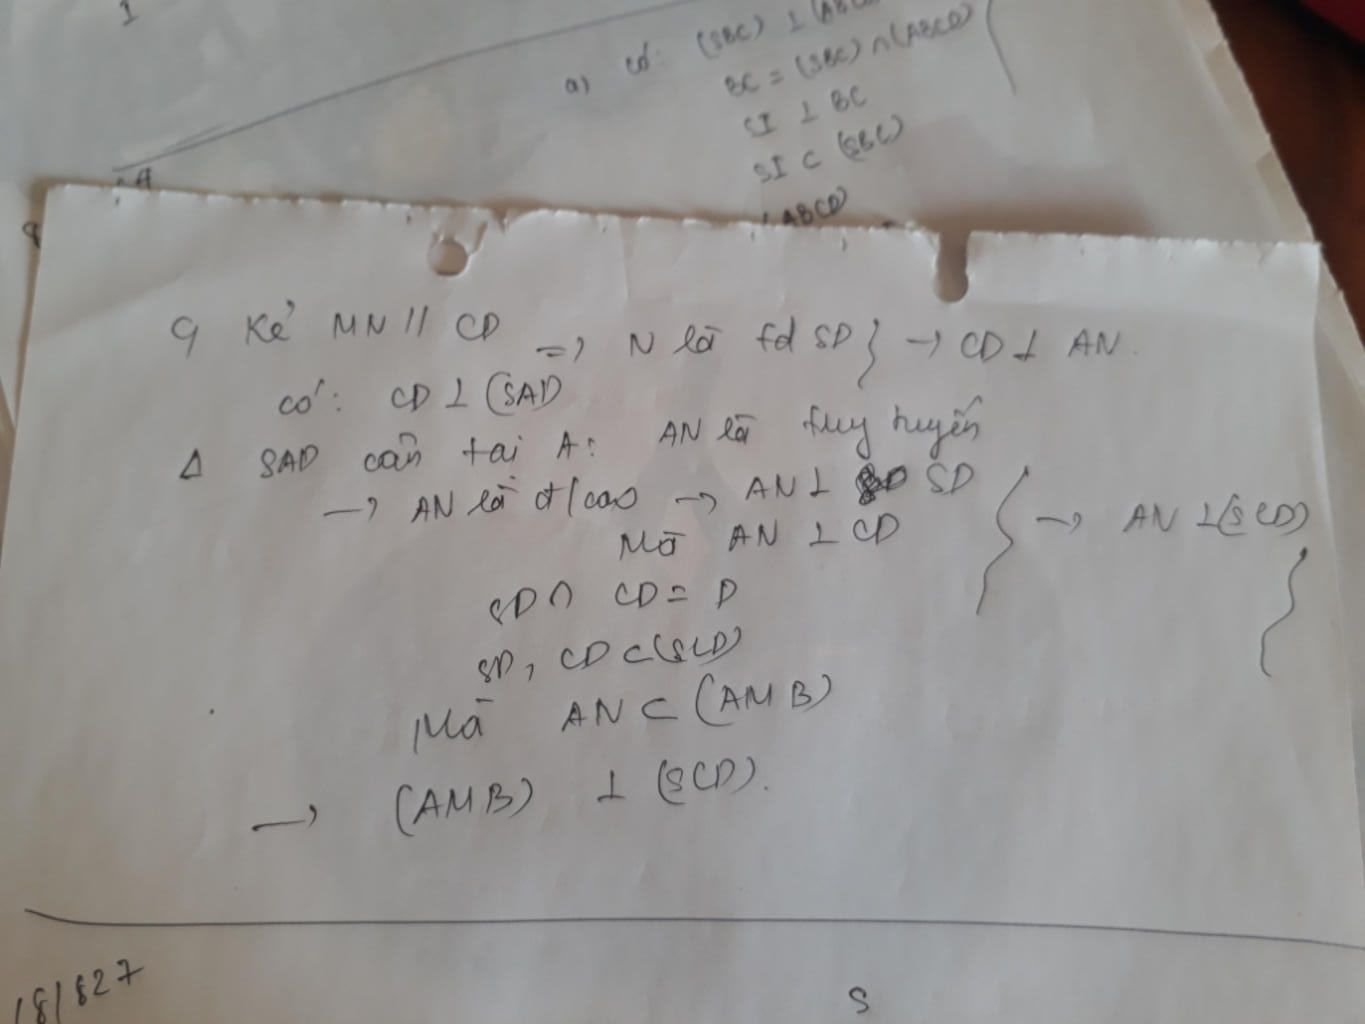 I
a) có: (SBC) ⊥ (ABCD)
BC = (SBC) ∩ (ABCD)
SI ⊥ BC
SI ⊂ (SBC)
A
(ABCD)
c, Kẻ MN // CD
=> N là tđ SD } → CD ⊥ AN.
có: CD ⊥ (SAD)
Δ SAD cân tại A: AN là tuy tuyến
→ AN là đ/cao → AN ⊥ SD
Mà AN ⊥ CD } → AN ⊥ (SCD)
SD ∩ CD = D
SD, CD ⊂ (SCD)
Mà AN ⊂ (AMB)
→ (AMB) ⊥ (SCD).
18/827
S